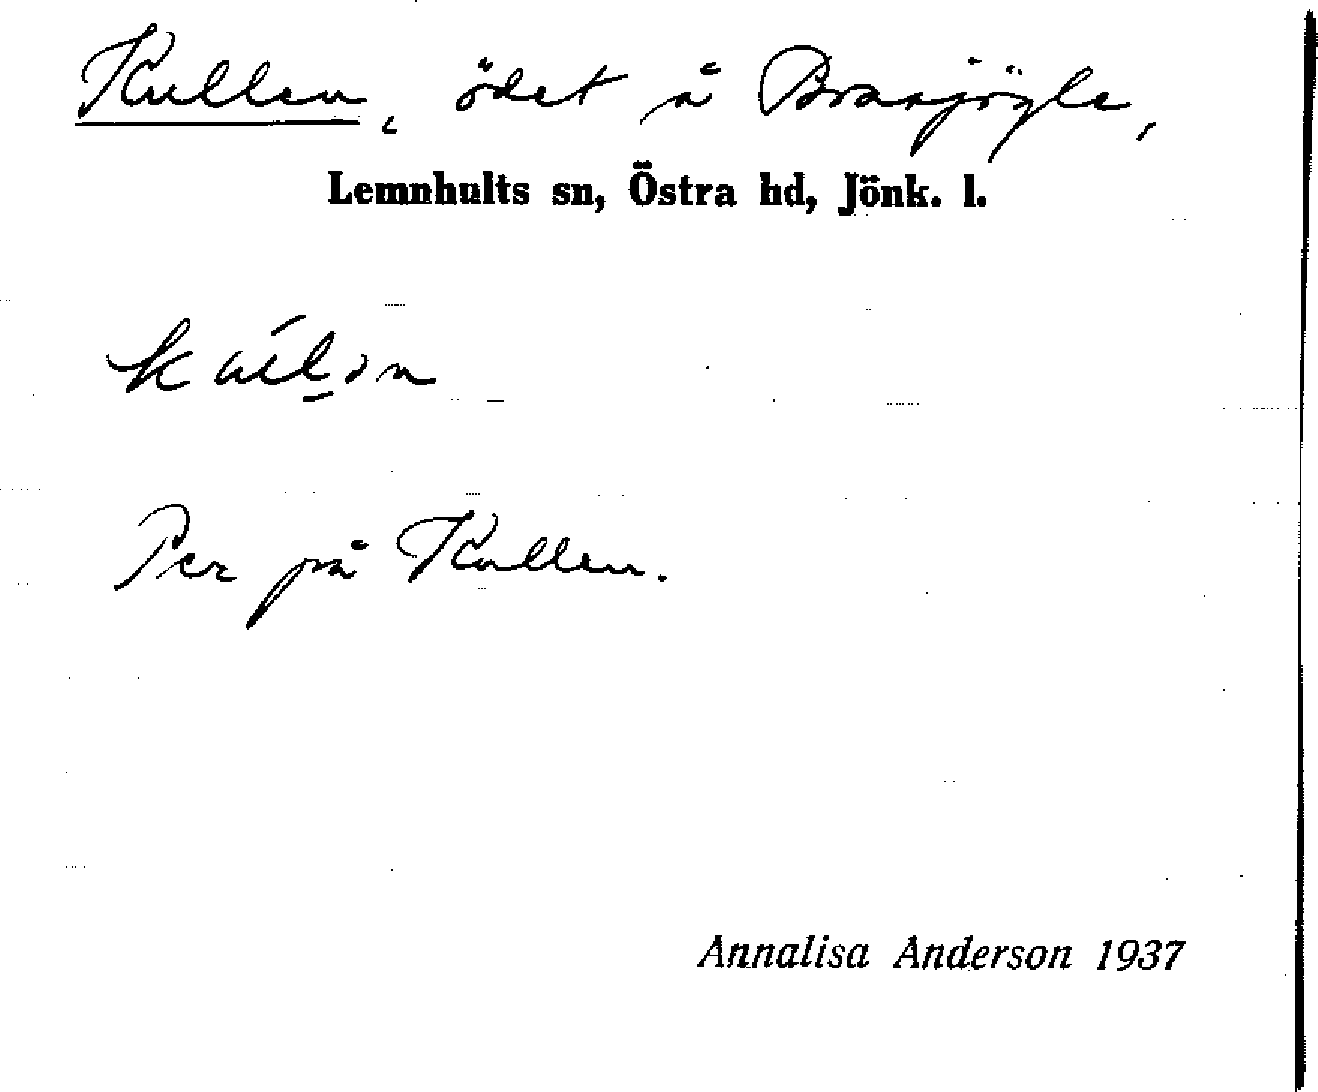 Kullen, ödet å Bransjögle,
Lemnhults sn, Östra hd, Jönk. l.
Per på Kullen.
Annalisa Anderson 1937